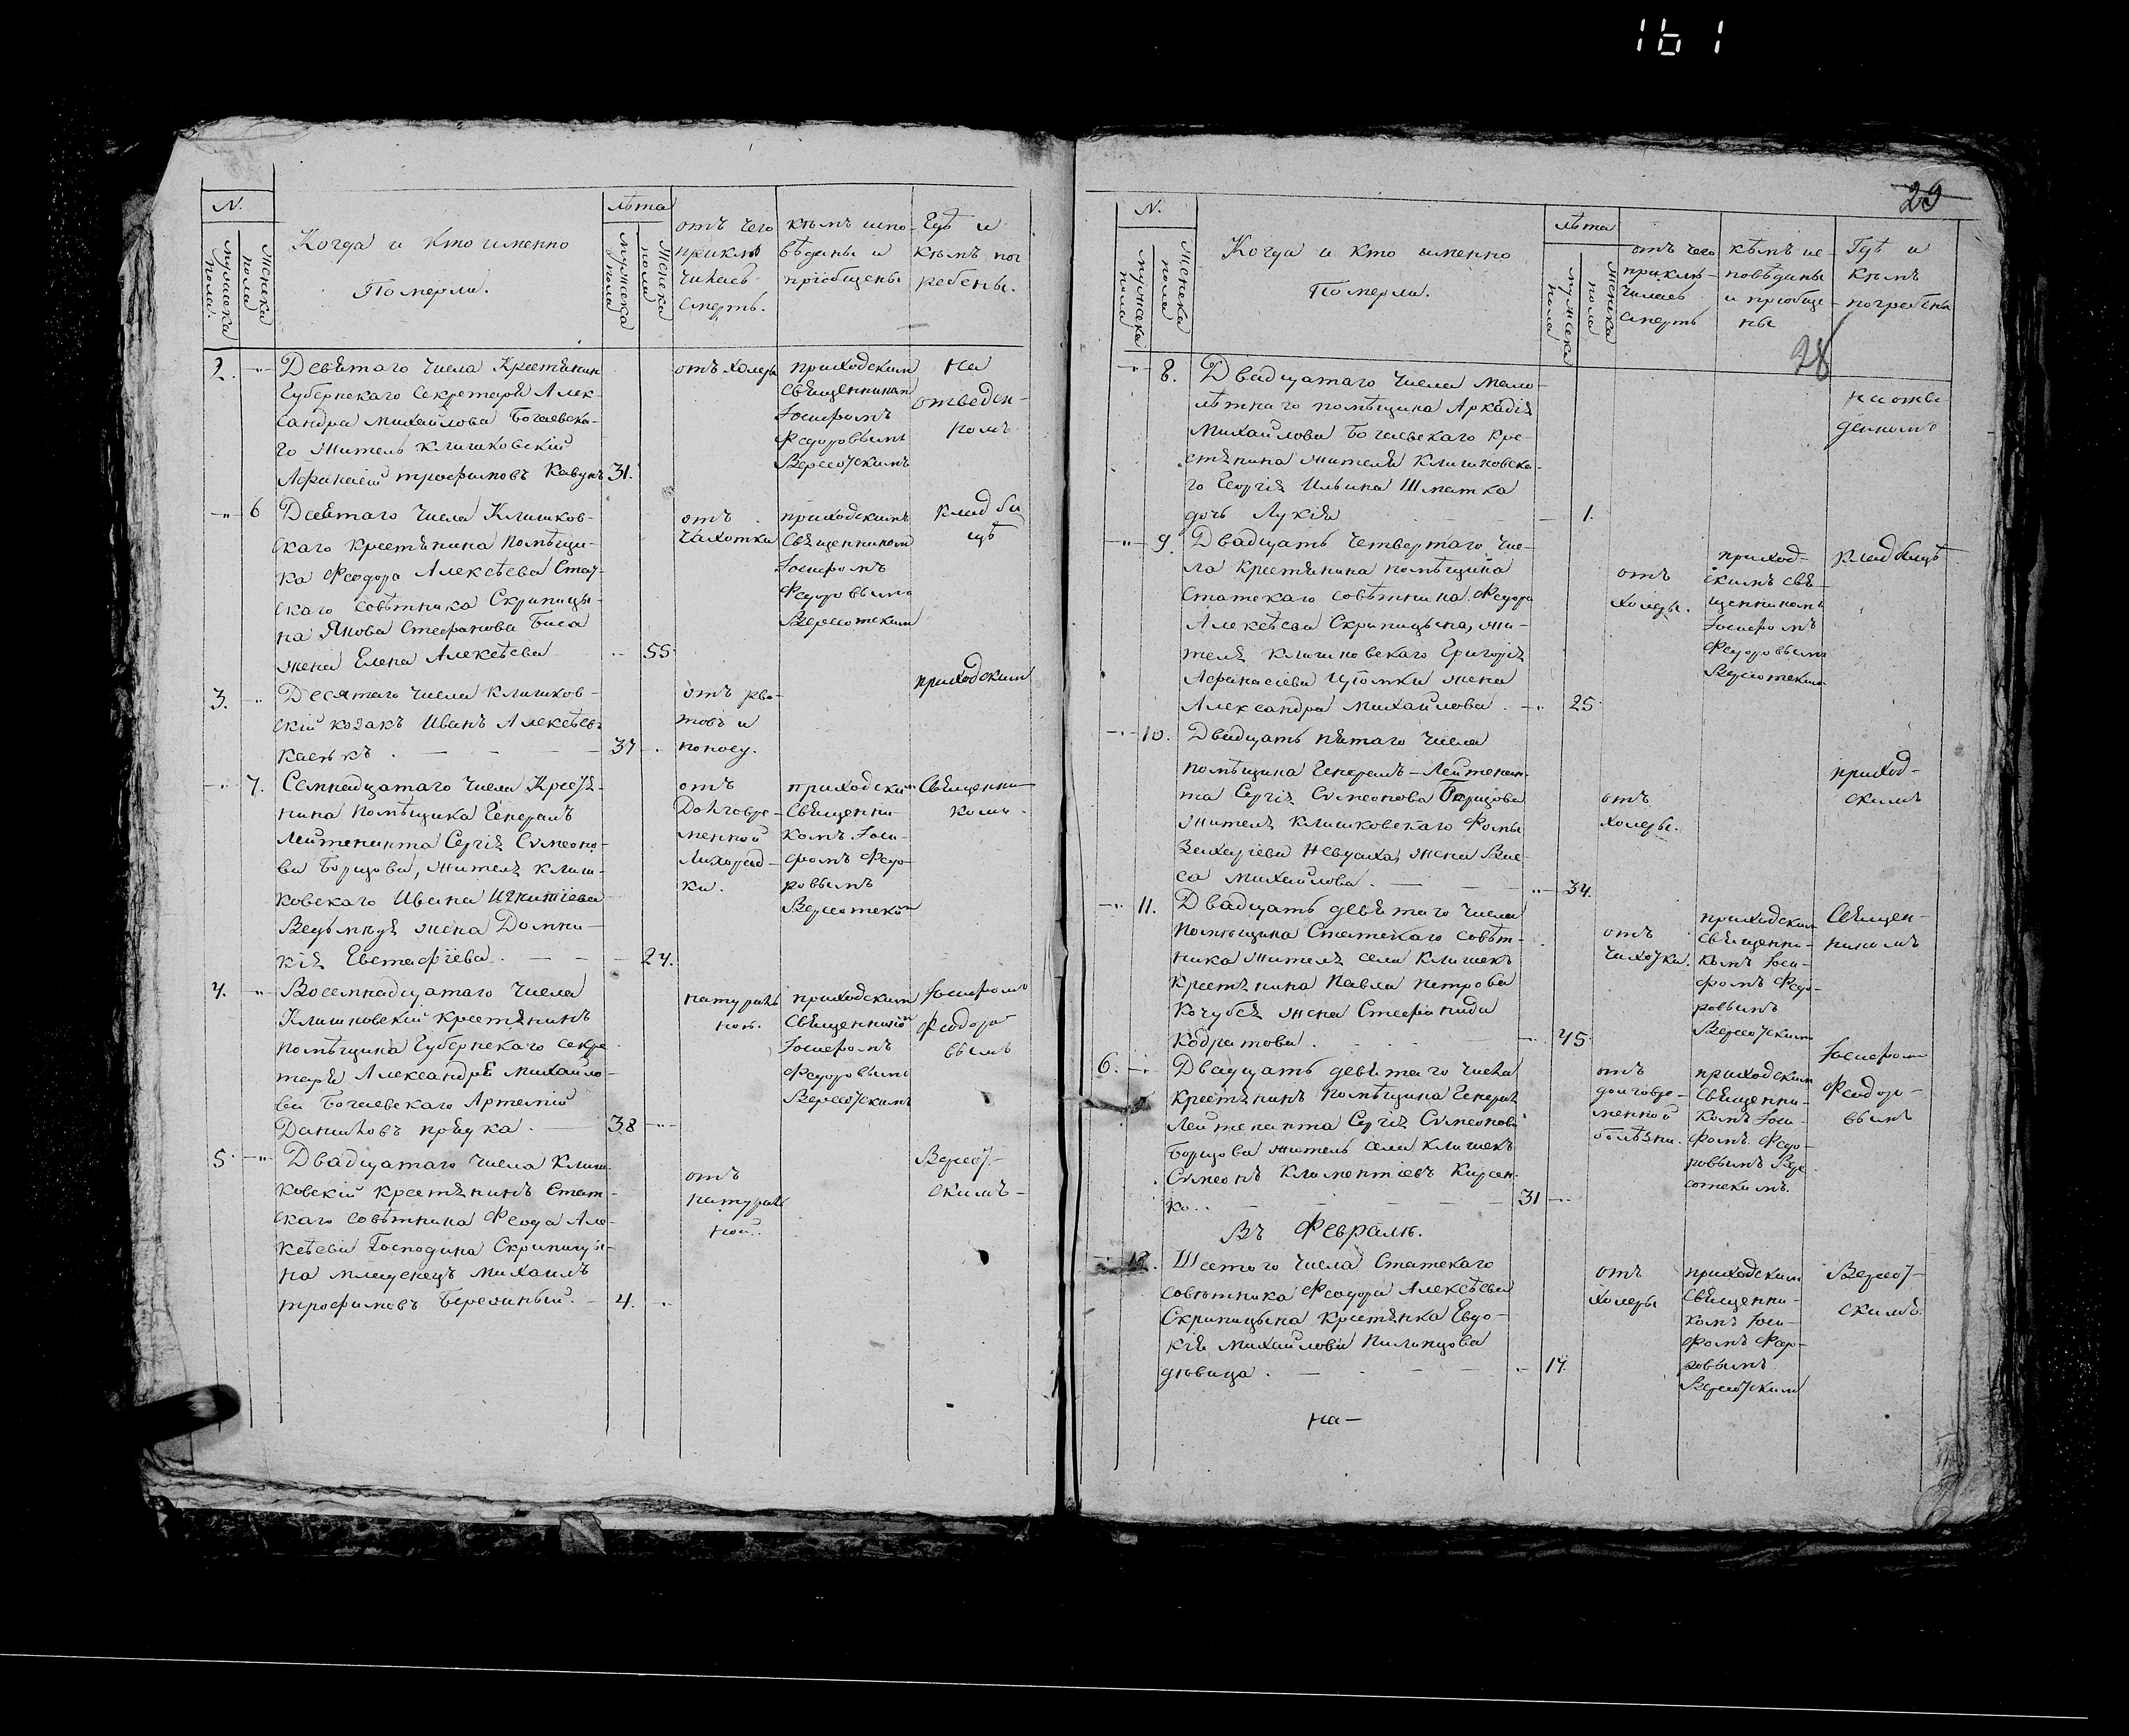 161
N.
мужеска пола.
женска пола
Когда и кто именно
Померли.
лѣта
мужеска пола
женска пола
отъ чего
приклю
чилась
смерть.
кѣмъ испо-
вѣданы и
пріобщены
Гдѣ и
кѣмъ пог
ребены.
2. -"-
Девятаго числа Крестянин
Губернскаго Секретаря Алек-
сандра Михайлова Богаевска-
го житель клишковскій
Афанасій трофимовъ Кавунъ 31.
отъ холеры
приходским
Священником
Іосифомъ
Федоровымъ
Вересотскимъ
На
отведен-
номъ
-"- 6
Девятаго числа Клишков-
скаго крестянина помѣщи-
ка Феодора Алексѣева Стат-
скаго совѣтника Скрипицы-
на Якова Стефанова Биса
жена Елена Алексѣева -- 55.
отъ
чахотки
приходскимъ
Священником
Іосифомъ
Федоровымъ
Вересотским
кладби
щѣ
3. -"-
Десятаго числа клишков-
скій козакъ Иванъ Алексѣевъ
Касъкъ. — 37 -.
отъ рво-
товъ и
поносу.
приходским
-"- 7.
Семнадцатаго числа Крестя-
нина помѣщика Генералъ
Лейтенанта Сергія Сѵмеоно-
ва Борщова, жителя клиш-
ковскаго Ивана Игнатіева
жена Домни-
кія Евстафіева. — 24.
отъ
Долговре-
менной
лихорад-
ки.
приходским
Священни-
комъ Іоси-
фомъ Федо-
ровымъ
Вересотским
Священни-
комъ.
4. -"-
Восемнадцатаго числа
Клишковскій крестянинъ
помѣщика Губернскаго секре-
таря Александра Михайло-
ва Богаевскаго Артемій
Даниловъ прядка. — 38 -"-
натураль
ной.
приходским
Священником
Іосифомъ
Федоровымъ
Вересотскимъ
Іосифомъ
Феодоро
вымъ
5. -"-
Двадцатаго числа клиш-
ковскій крестянинъ Стат-
скаго совѣтника Феода Але-
ксѣева Господина Скрипицы-
на младенецъ Михаилъ
трофимовъ Березиный. — 4. -.
отъ
натураль
ной.
Вересот-
скимъ -
29
28
N.
мужеска пола
женска пола
Когда и кто именно
Померли.
лѣта
мужеска пола
женска пола
отъ чего
приклю-
чилась
смерть
кѣмъ ис-
повѣданы
и пріобще
ны
Гдѣ и
кѣмъ
погребены
-"- 8.
Двадцатаго числа мало-
лѣтнаго помѣщика Аркадія
Михайлова Богаевскаго кре-
стянина жителя клишковска-
го Георгія Ильина Шматка
дочь Лукія — 1.
на отве-
денномъ
-"- 9.
Двадцать четвертаго чис-
ла крестянина помѣщика
Статскаго совѣтника Федора
Алексѣева Скрипицына, жи-
теля клишковскаго Григорія
Афанасіева жена
Александра Михайлова. -- 25.
отъ
холеры.
приход-
скимъ свя-
щенникомъ
Іосифомъ
Федоровымъ
Вересотским
кладбищѣ
-"- 10.
Двадцать пятаго числа
помѣщика Генералъ-Лейтенан-
та Сергія Сѵмеонова Борщова
жителя клишковскаго Фомы
Захаріева жена Вас-
са Михайлова. — -- 34.
отъ
холеры.
приход-
скимъ
-"- 11.
Двадцать девятаго числа
помѣщика Статскаго совѣт-
ника жителя села клишекъ
Крестянина Павла Петрова
Кочубея жена Стефанида
Кодратова. — 45.
отъ
чахотки.
приходским
священни-
комъ Іоси-
фомъ Федо-
ровымъ
Вересотскимъ
Священ-
никомъ
6. -"-
Двадцать девятаго числа
крестянинъ помѣщика Генералъ
Лейтенанта Сергія Сѵмеонова
Борщова житель села клишекъ
Сѵмеонъ Климентіевъ Кирѣен-
ко.. — 31 --
отъ
долговре-
менной
болѣзни.
приходским
Священни-
комъ Іоси-
фомъ Федо-
ровымъ Вере-
сотскимъ.
Іосифомъ
Феодоро-
вымъ
Въ Февралѣ.
-"- 12.
Шестого числа Статскаго
совѣтника Феодора Алексѣева
Скрипицына крестянка Евдо-
кія Михайлова Пилипцова
дѣвица. — 17.
отъ
холеры
приходским
Священни-
комъ Іоси-
фомъ Федо-
ровымъ
Вересотским
Вересот-
скимъ.
на-